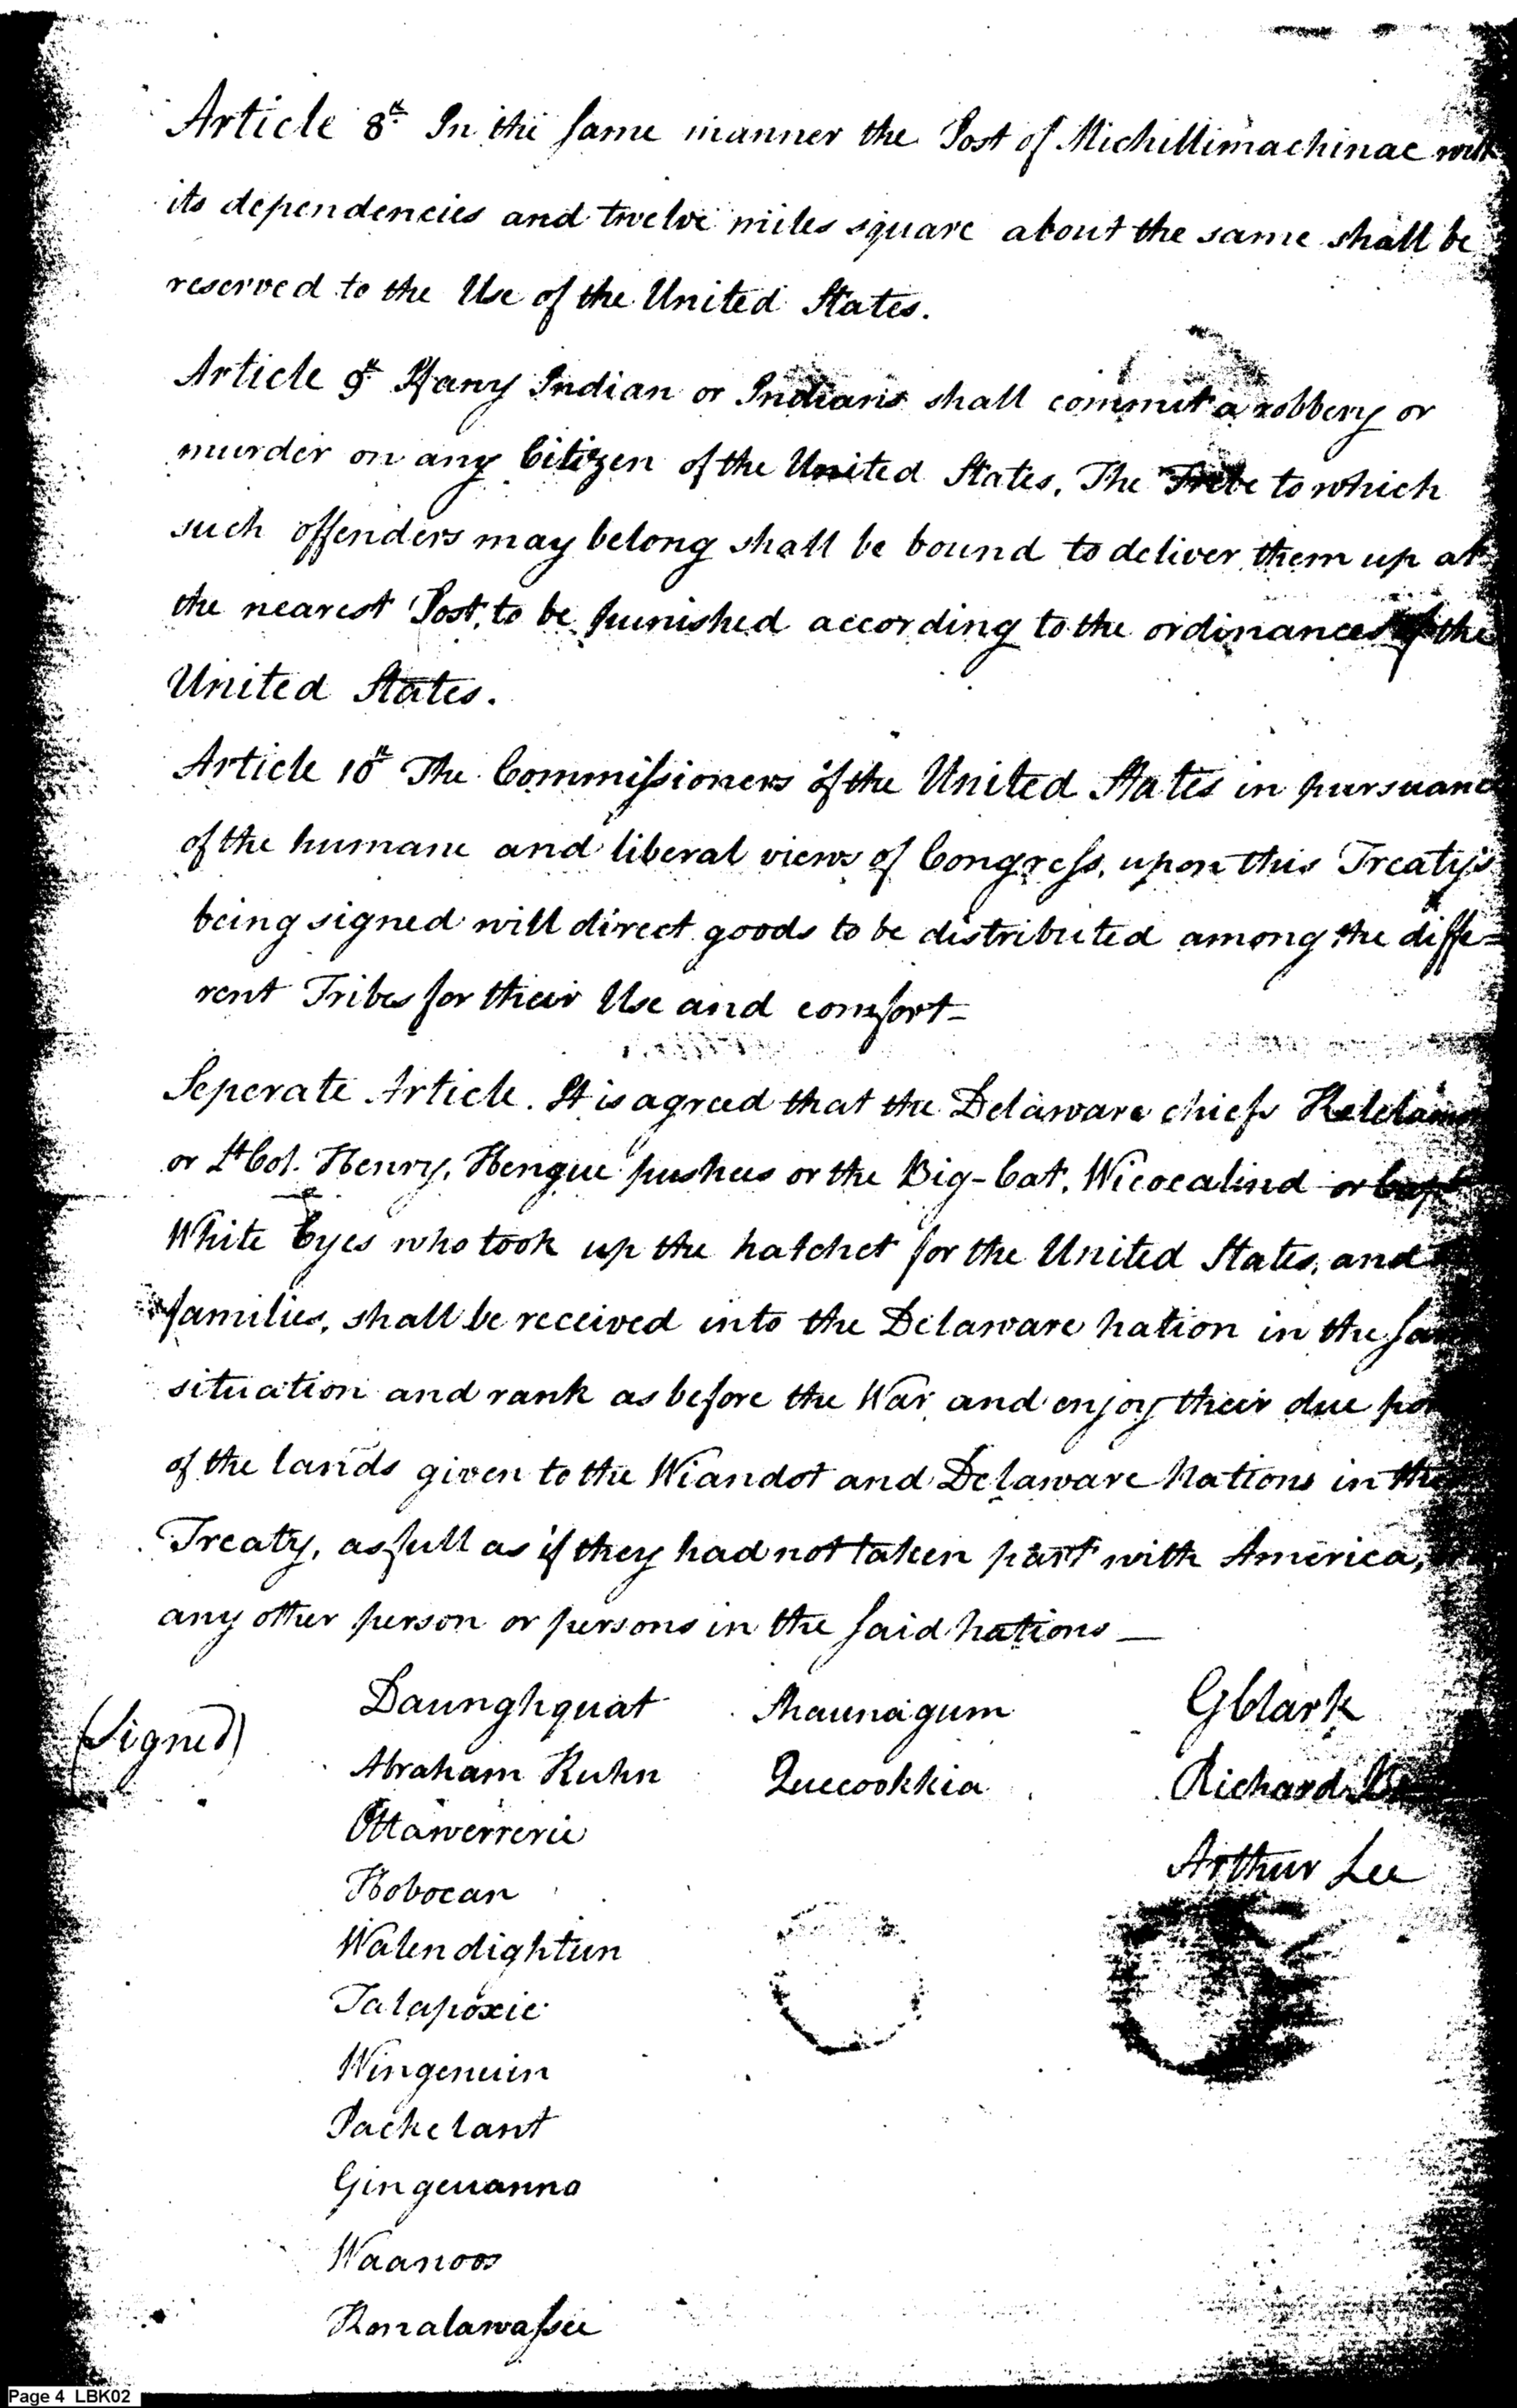 Article 8th In the same manner the Post of Michillimachinac with
its dependencies and twelve miles square about the same shall be
reserved to the Use of the United States.
Article 9th If any Indian or Indians shall commit a robbery or
murder on any Citizen of the United States, The Tribe to which
such offenders may belong shall be bound to deliver them up at
the nearest Post, to be punished according to the ordinances of the
United States.
Article 10th The Commissioners of the United States in pursuance
of the humane and liberal views of Congress, upon this Treaty's
being signed will direct goods to be distributed among the diffe=
rent Tribes for their Use and comfort-
Seperate Article. It is agreed that the Delaware chiefs
or Lt Col. Henry, Hengue pushees or the Big-Cat, Wicocalind or Capt
White Eyes who took up the hatchet for the United States, and
families, shall be received into the Delaware nation in the
situation and rank as before the War and enjoy their due
of the lands given to the Wiandot and Delaware Nations in
Treaty, as full as if they had not taken part with America,
any other person or persons in the said nations —
(Signed) Daunghquat Shaunagum GClark
Abraham Kuhn Quecookkia Richard
Ottawerrerie Arthur Lee
Hobocan
Walendightun
Talapoxie
Wingenuin
Packelant
Gingewanno
Waanoos
Konalawassee
Page 4 LBK02